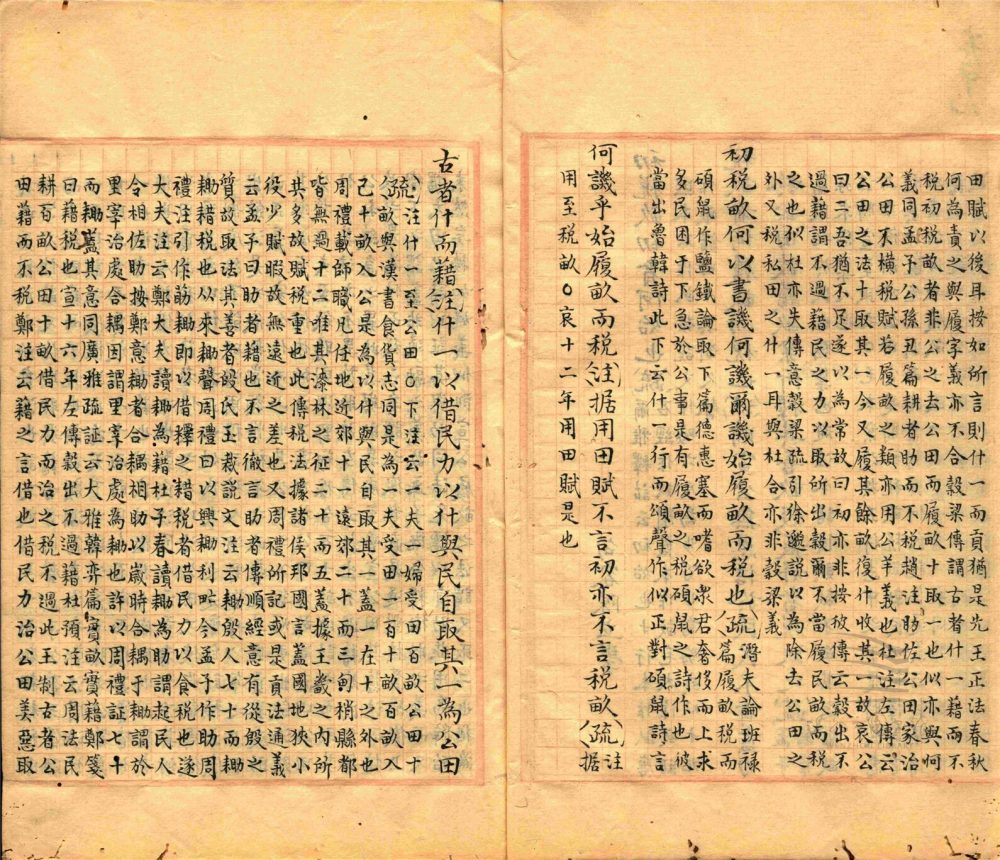 田賦以後耳按如所言則什一而貢猶是先王正法春秋
何為責之與履字義亦不合穀梁傳謂古者什一藉而不
稅初稅畝者非公之去公田而履畝十取一也似亦與何
義同孟子公孫丑篇耕者助而不稅趙注助佐公田家治
公田不橫稅賦若履畝之類亦用公羊義也杜注左傳云
公田之法十取其一今又履其餘畝復什收其一故哀公
曰二吾猶不足遂以為常故曰初亦非按彼傳云穀出不
過藉謂不過藉民之力以取所出穀爾不當履民畝而稅
之也似杜亦失傳意穀梁疏引徐邈說以為除去公田之
外又稅私田之什一耳與杜合亦非穀梁義
初稅畝何以書譏何譏爾譏始履畝而稅也疏潛夫論班祿
篇履畝稅而
碩鼠作鹽鐵論取下篇德惠塞而嗜欲眾君奢侈而上求
多民困于下急於公事是有履畝之稅碩鼠之詩作也彼
當出魯韓詩此下云什一行而頌聲作似正對碩鼠詩言
何譏乎始履畝而稅注据用田賦不言初亦不言稅畝疏注
据
用至稅畝○哀十二年用田賦是也
古者什而藉注什一以借民力以什與民自取其一為公田
疏注什一至公田○下注云一夫一婦受田百畝公田十
畝與漢書食貨志同是為一夫受田一百十畝百畝入
己十畝入公是為以什與民自取其一蓋一在十之外也
周禮載師職凡任地近郊十一遠郊二十而三甸稍縣都
皆無過十二唯其漆林之征二十而五蓋據王畿之內所
其多故賦稅重也此傳稅法據諸侯邦國言蓋國地狹小
役少賦暇故無遠近之差也又周禮所記或是貢法通義
云孟子曰助者藉也不言徹言助者傳順經意有從殷之
質故取法其善者段氏玉裁說文注云耡殷人七十而耡
耡耤稅也从耒耡聲周禮曰以興耡利甿今孟子作助周
禮注引作莇耡即以借釋之耤稅者借民力以食稅也遂
大夫注云鄭大夫讀耡為藉杜子春讀耡為助謂起民人
令相佐助按鄭意耡者合耦相助以歲時合耦于耡謂於
里宰治處合耦因謂里宰治處為耡也許以周禮証七十
而耡蓋其意同廣雅疏証云大雅韓弈篇實畝實藉鄭箋
曰藉稅也宣十六年左傳穀出不過藉杜預注云周法民
耕百畝公田十畝借民力而治之稅不過此王制古者公
田藉而不稅鄭注云藉之言借也借民力治公田美惡取